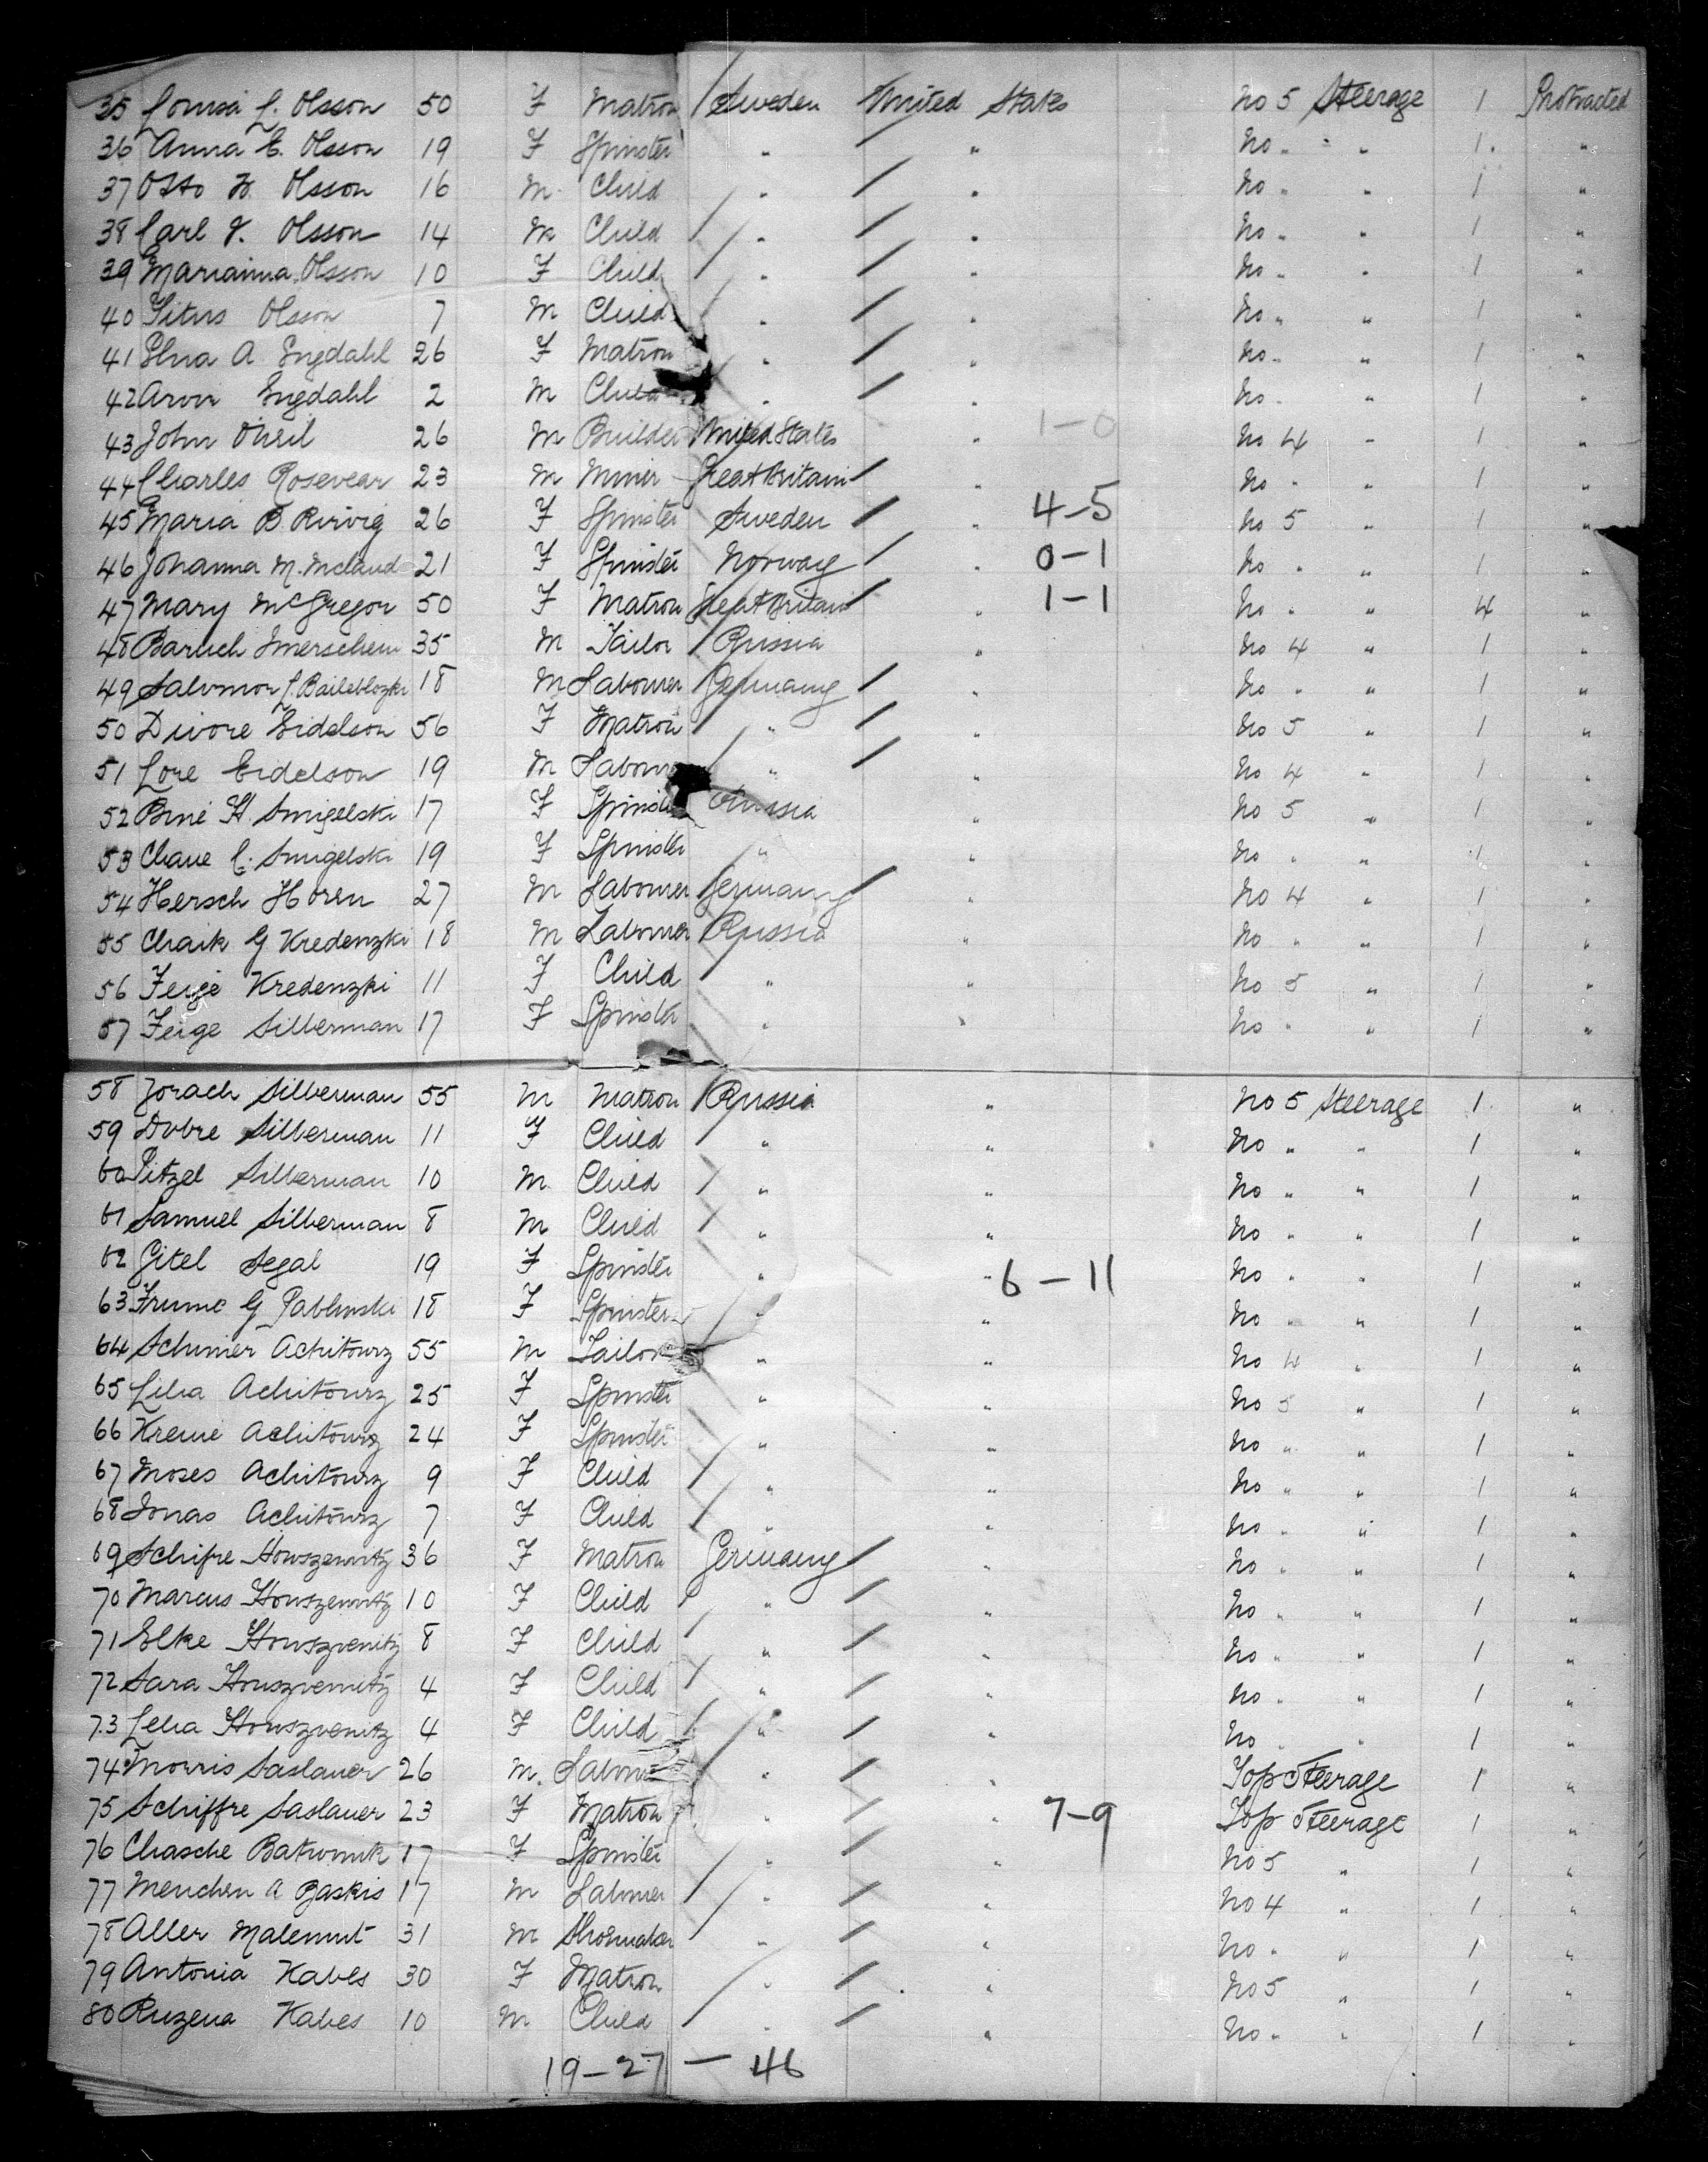 35 Lovisa L. Olsson 50 F Matron Sweden United States No 5 Steerage 1 Protracted
36 Anna E. Olsson 19 F Spinster " " No " " 1 "
37 Otto W. Olsson 16 M Child " " No " " 1 "
38 Carl V. Olsson 14 M Child " " No " " 1 "
39 Marianna Olsson 10 F Child " " No " " 1 "
40 Titus Olsson 7 M Child " " No " " 1 "
41 Elna A Engdahl 26 F Matron " " No " " 1 "
42 Arvir Engdahl 2 M Child " " No " " 1 "
43 John 26 M Builder United States " 1-0 No 4 " 1 "
44 Charles Rosevear 23 M Miner Great Britain " No " " 1 "
45 Maria B. Rirvig 26 F Spinster Sweden " 4-5 No 5 " 1 "
46 Johanna M. 21 F Spinster Norway " 0-1 No " " 1 "
47 Mary McGregor 50 F Matron Great Britain " 1-1 No " " 4 "
48 Baruch 35 M Tailor Russia " No 4 " 1 "
49 Salomon L. 18 M Labourer Germany " No " " 1 "
50 Divore Eidelson 56 F Matron " " No 5 " 1 "
51 Lore Eidelson 19 M Labourer " " No 4 " 1 "
52 Brie H Smigelski 17 F Spinster Russia " No 5 " 1 "
53 Chave C. Smigelski 19 F Spinster " " No " " 1 "
54 Hersch Horen 27 M Labourer Germany " No 4 " 1 "
55 Chaik G Kredenzki 18 M Labourer Russia " No " " 1 "
56 Feige Kredenzki 11 F Child " " No 5 " 1 "
57 Feige Silberman 17 F Spinster " " No " " 1 "
58 Jorach Silberman 55 M Matron Russia " No 5 Steerage 1 "
59 Dobre Silberman 11 F Child " " No " " 1 "
60 Pitzel Silberman 10 M Child " " No " " 1 "
61 Samuel Silberman 8 M Child " " No " " 1 "
62 Gitel Segal 19 F Spinster " " 6-11 No " " 1 "
63 Frume G Pablunski 18 F Spinster " " No " " 1 "
64 Schmer Achitowz 55 M Tailor " " No 4 " 1 "
65 Lilia Achitowz 25 F Spinster " " No 5 " 1 "
66 Kreine Achitowz 24 F Spinster " " No " " 1 "
67 Moses Achitowz 9 F Child " " No " " 1 "
68 Jonas Achitowz 7 F Child " " No " " 1 "
69 Schifre Howszenvitz 36 F Matron Germany " No " " 1 "
70 Marcus Howszenvitz 10 F Child " " No " " 1 "
71 Elke Howszvenitz 8 F Child " " No " " 1 "
72 Sara Howszvenitz 4 F Child " " No " " 1 "
73 Lelia Howszvenitz 4 F Child " " No " " 1 "
74 Morris Saslauer 26 M. Labourer " " Top Steerage 1 "
75 Schiffre Saslauer 23 F Matron " " 7-9 Top Steerage 1 "
76 Chasche Batrovnik 17 F Spinster " " No 5 " 1 "
77 Menchen A Baskis 17 M Labourer " " No 4 " 1 "
78 Aller Malemut 31 M Shoemaker " " No " " 1 "
79 Antonia Kabes 30 F Matron " " No 5 " 1 "
80 Ruzena Kabes 10 M Child " " No " " 1 "
19-27 - 46